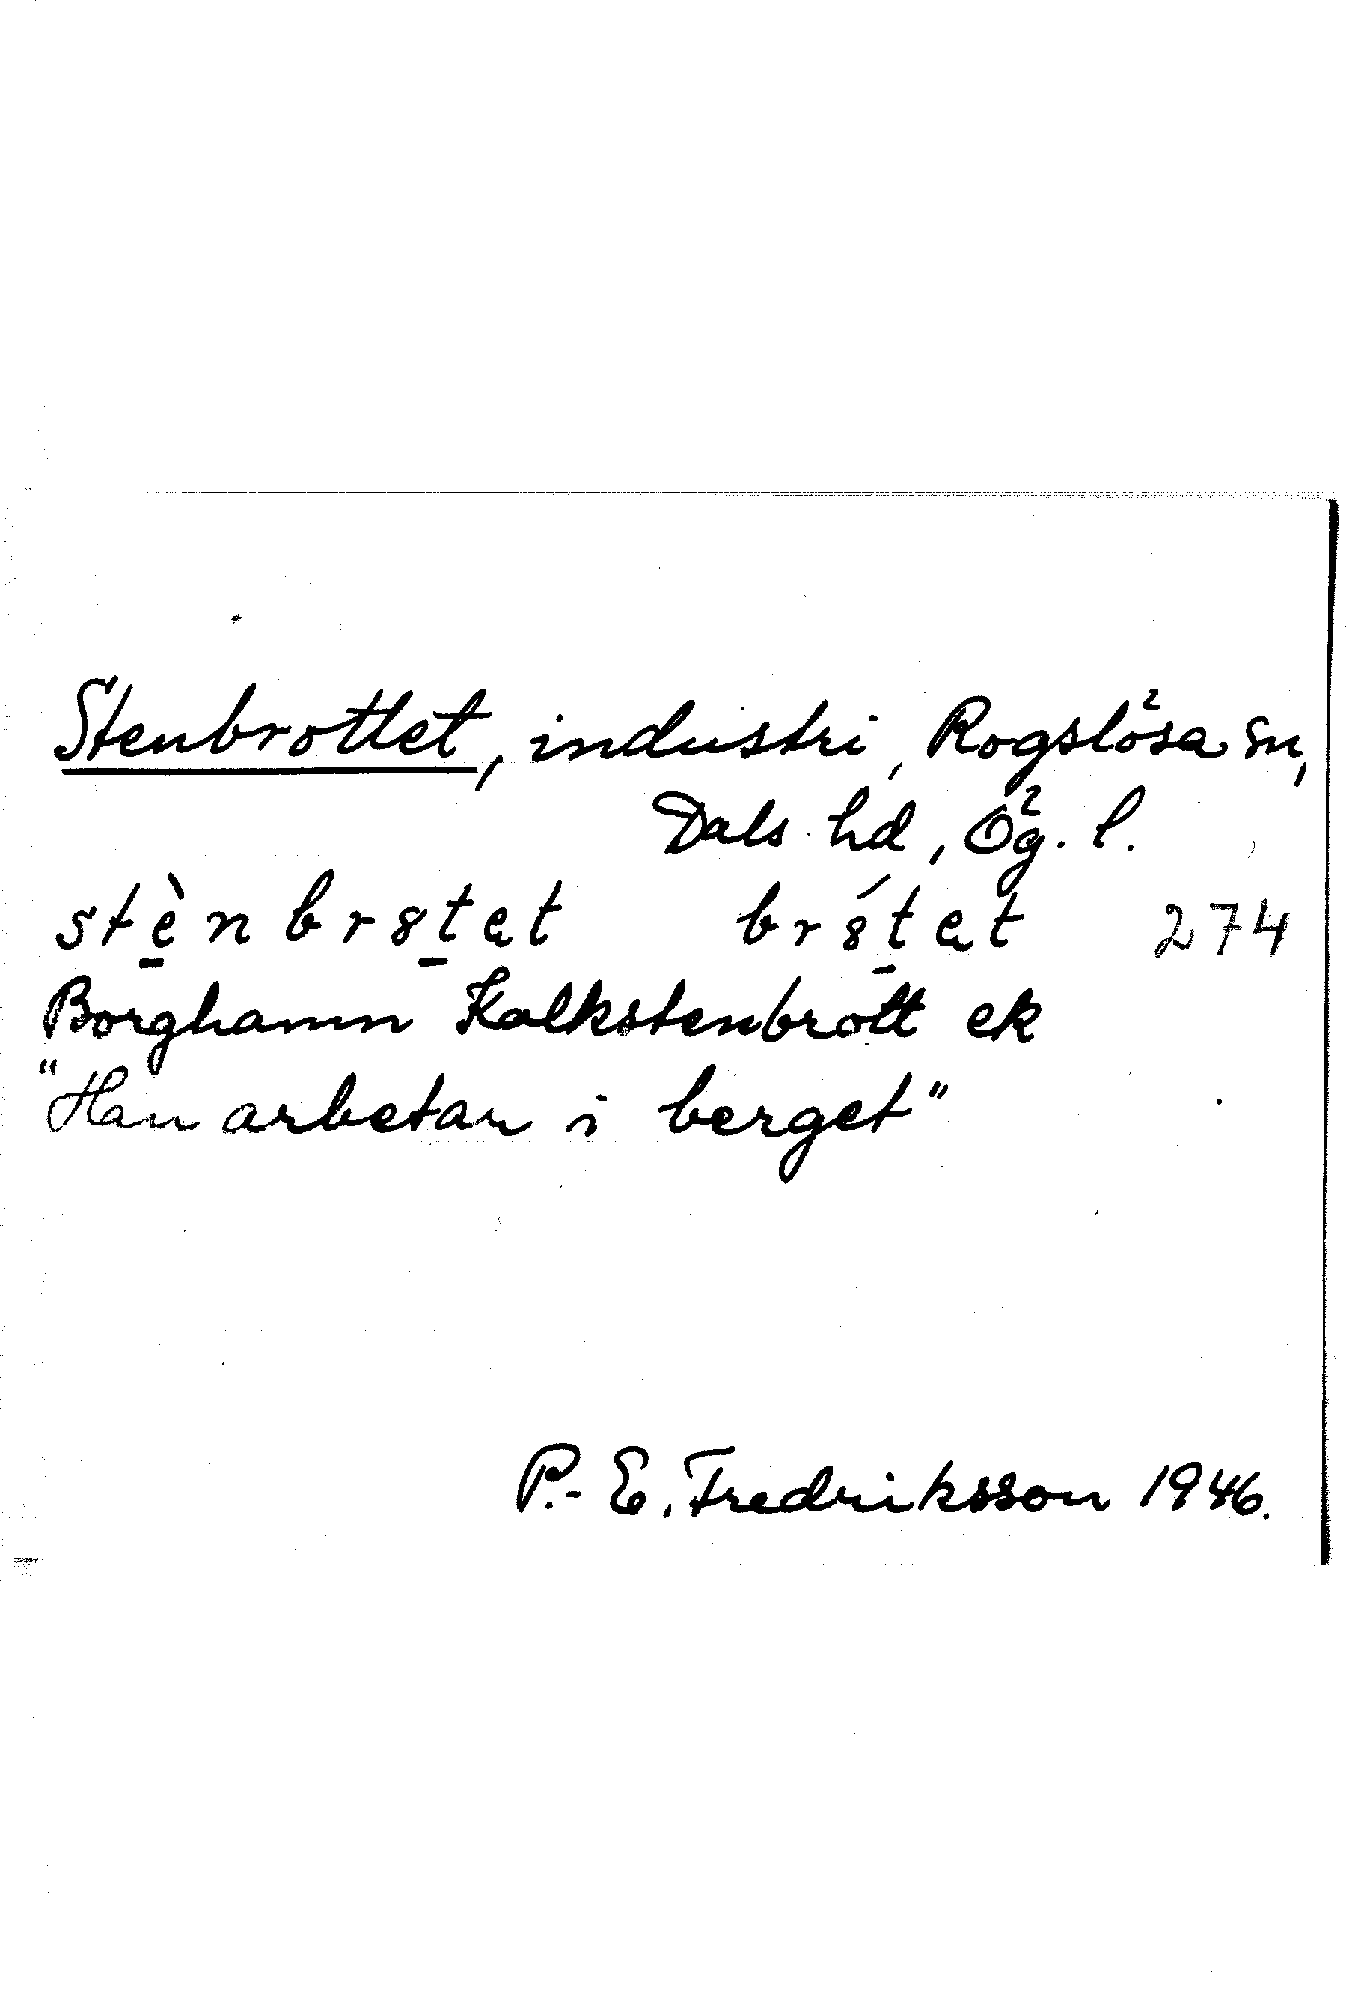 Stenbrottet, industri, Rogslösa sn,
Dals hd, Ög. l.
stè̠nbr8t̠et br8́t̠et 274
Borghamn Kalkstenbrott ek
"Han arbetar i berget"
P.-E. Fredriksson 1946.